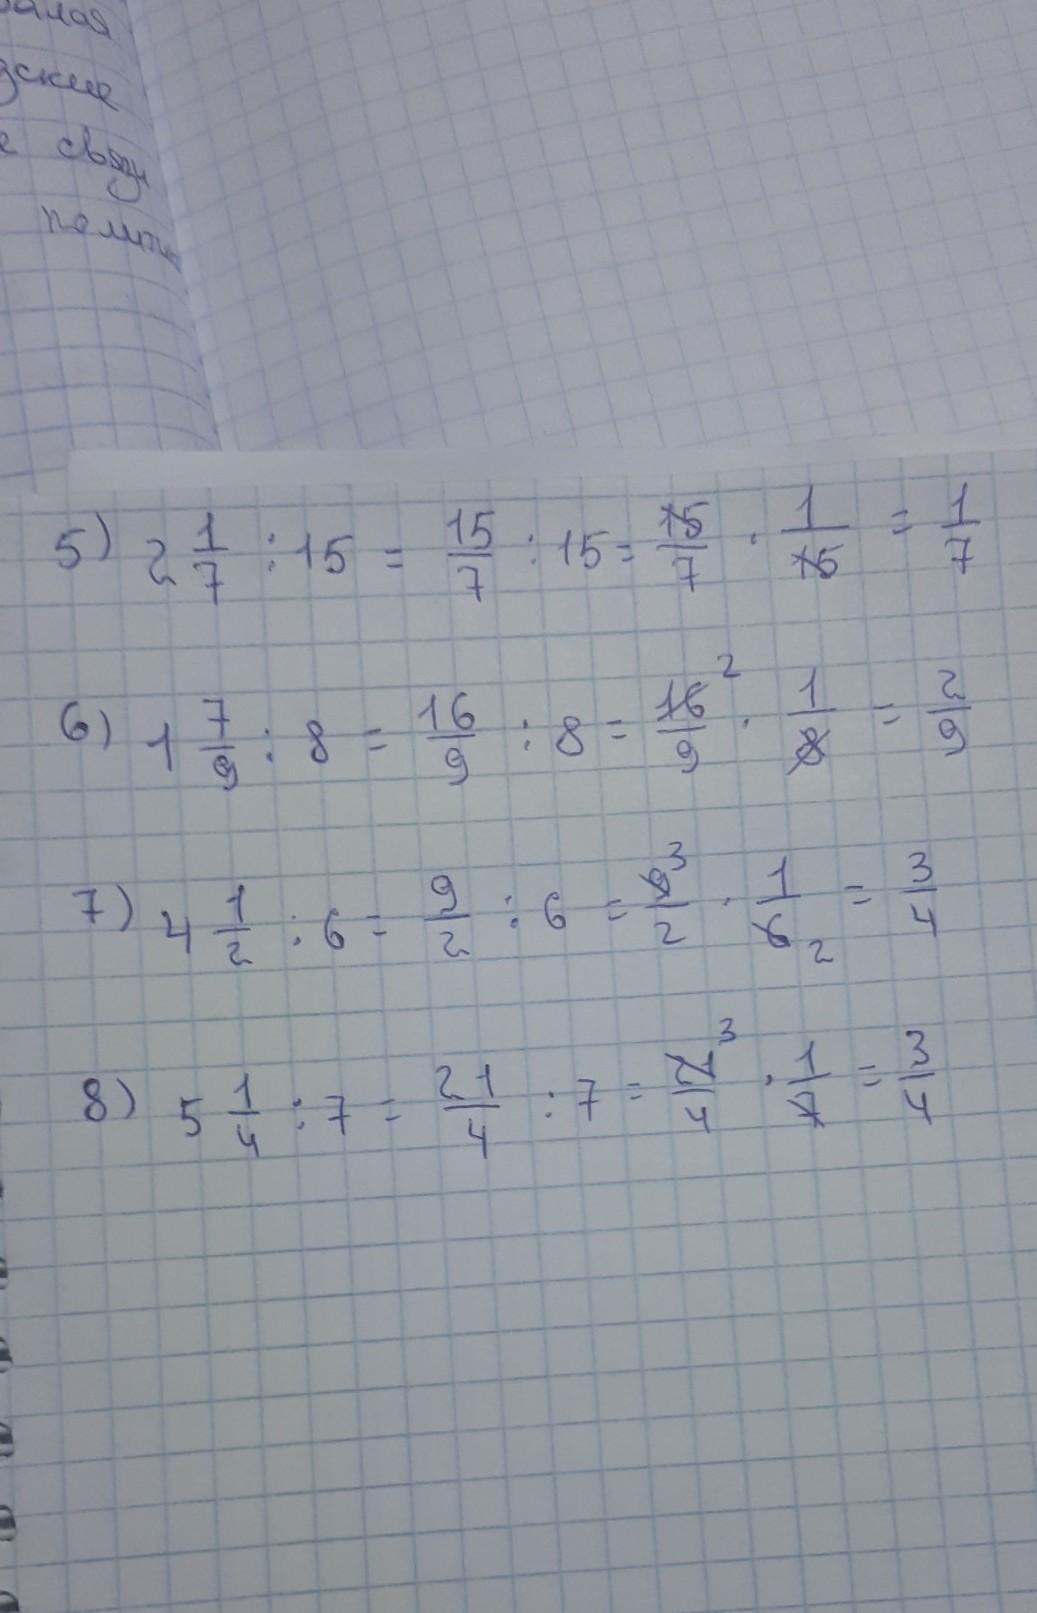 связи
5) 2 1/7 : 15 = 15/7 : 15 = 15/7 · 1/15 = 1/7
6) 1 7/9 : 8 = 16/9 : 8 = 16/9 2 · 1/8 = 2/9
7) 4 1/2 : 6 = 9/2 : 6 = 9/2 3 · 1/6 2 = 3/4
8) 5 1/4 : 7 = 21/4 : 7 = 21/4 3 · 1/7 = 3/4